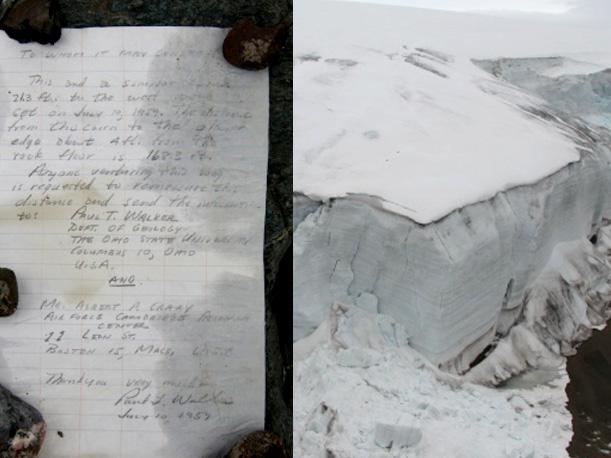 TO WHOM IT MAY CONCERN
This and a similar
21.3 ft. to the west were
set on July 10, 1959. The distance
from this cairn to the glacier
edge about 4 ft. from the
rock floor is 168.3 ft.
Anyone venturing this way
is requested to remeasure this
distance and send the information
to: PAUL T. WALKER
DEPT. OF GEOLOGY
THE OHIO STATE UNIVERSITY
COLUMBUS 10, OHIO
U.S.A.
AND
MR. ALBERT P. CRARY
AIR FORCE CAMBRIDGE RESEARCH
CENTER
11 LEON ST.
BOSTON 15, MASS, U.S.A.
Thank you very much
Paul T. Walker
July 10, 1959